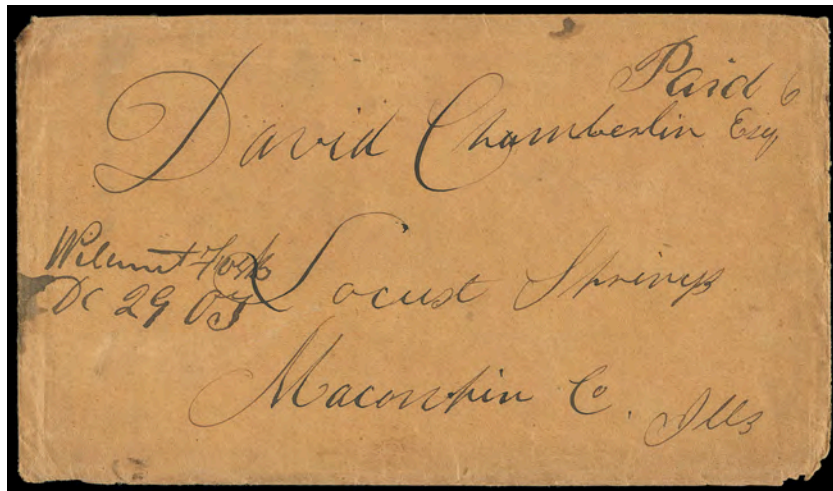 Paid 6
David Chamberlin Esq
Fork
Dc 29
Locust Springs
Macoupin Co. Ills